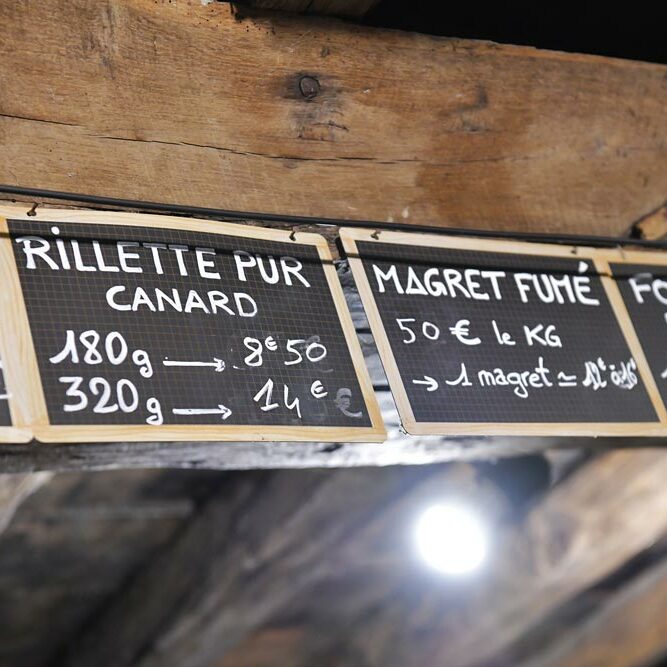 RILLETTE PUR
CANARD
180g → 8€50
320g → 14€
MAGRET FUMÉ
50 € le KG
→ 1 magret ≃ 12€ à 16€
FO